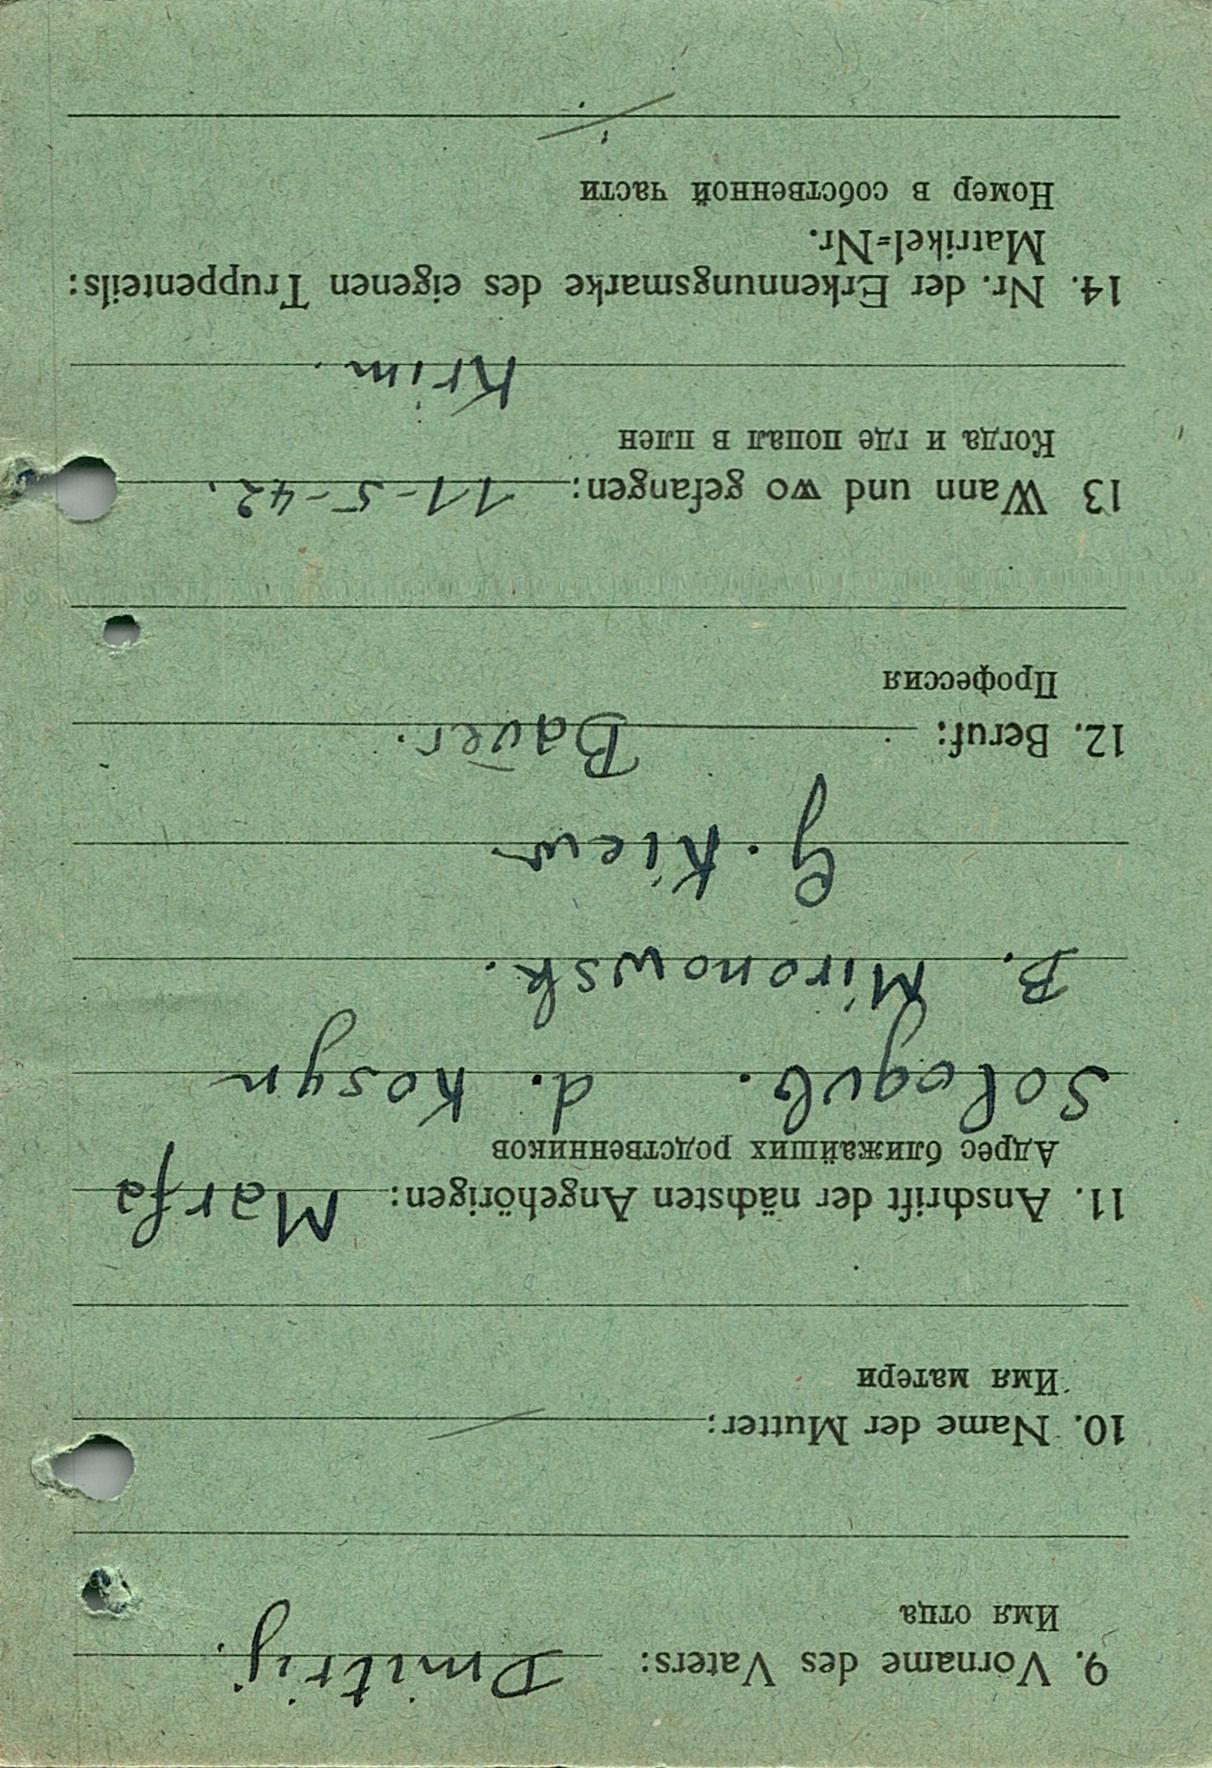 9. Vorname des Vaters: Dmitrij.
Имя отца
10. Name der Mutter: —
Имя матери
11. Anschrift der nächsten Angehörigen: Marfa
Адрес ближайших родственников
Sologub. d. Kosyn
B. Mironowsk.
G. Kiew
12. Beruf: Bauer.
Профессия
13 Wann und wo gefangen: 11-5-42.
Когда и где попал в плен
Krim.
14. Nr. der Erkennungsmarke des eigenen Truppenteils:
Matrikel=Nr.
Номер в собственной части